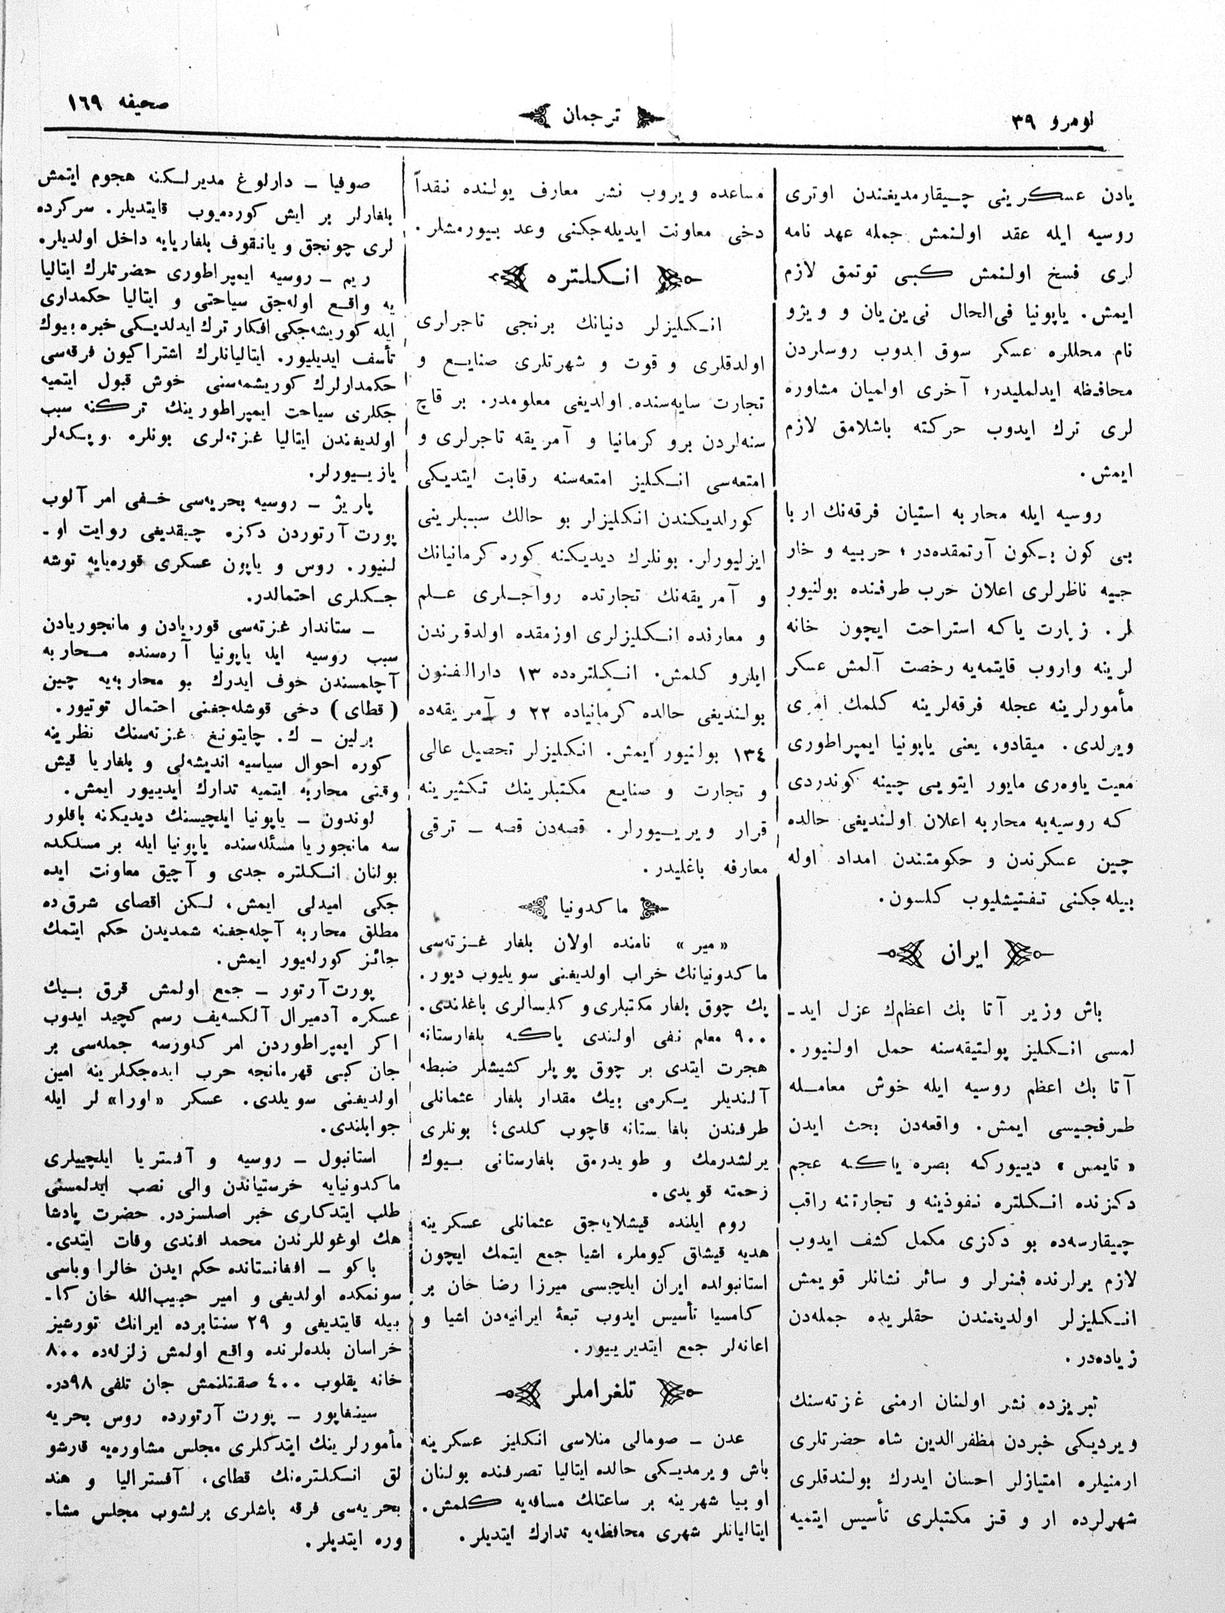 نومرو ٣٩
ترجمان
صحیفه ١٦٩
یادن عسکرینی چیقارمدیغندن اوتری
روسیه ایله عقد اولنمش جمله عهد نامه
لری فسخ اولنمش کبی توتمق لازم
ایمش. یاپونیا فی‌الحال نی‌ین‌یان و ویژو
نام محللره عسکر سوق ایدوب روسلردن
محافظه ایدلملیدر؛ آخری اولمیان مشاوره
لری ترك ایدوب حرکته باشلامق لازم
ایمش.
روسیه ایله محاربه استیان فرقه‌نك اربا
بی کون بـکون آرتمقده‌در؛ حربیه و خار
جیه ناظرلری اعلان حرب طرفنده بولنیور
لر. زیارت یاکه استراحت ایچون خانه
لرینه واروب قایتمه‌یه رخصت آلمش عسکر
مأمورلرینه عجله فرقه‌لرینه کلمك امری
ویرلدی. میقادو، یعنی یاپونیا ایمپراطوری
معیت یاوه‌ری مایور ایتویی چینه کوندردی
که روسیه‌یه محاربه اعلان اولندیغی حالده
چین عسکرندن و حکومتندن امداد اوله
بیله‌جکنی تـفـتیشلیوب کلسون.
ایران
باش وزیر آتا بك اعظمك عزل ایدـ
لمسی انـکلیز پولتیقه‌سنه حمل اولنیور.
آتا بك اعظم روسیه ایله خوش معاملـه
طرفجیسی ایمش. واقعه‌دن بحث ایدن
«تایمس» دیـیورکه بصره یاکه عجم
دکزنده انـکلتره نـفوذینه و تجارتنه راقب
چیقارسه‌ده بو دکزی مکمل کشف ایدوب
لازم یرلرنده فـنرلر و سائر نشانلر قویمش
انـکلیزلر اولدیغندن حقلریده جمله‌دن
زیاده‌در.
تبریزده نشر اولنان ارمنی غزته‌سنك
ویردیکی خبردن مظفرالدین شاه حضرتلری
ارمنیلره امتیازلر احسان ایدرك بولندقلری
شهرلرده ار و قـز مکتبلری تأسیس ایتمیه
مساعده ویروب نشر معارف یولنده نـقداً
دخی معاونت ایدیله‌جکنی وعد بـیورمشلر.
انـکـلـتره
انـکلیزلر دنیانك برنجی تاجرلری
اولدقلری و قوت و شهرتلری صنایـع و
تجارت سایه‌سنده اولدیغی معلومدر. بر قاچ
سنه‌لردن برو کرمانیا و آمریقه تاجرلری و
امتعه‌سی انـکلیز امتعه‌سنه رقابت ایتدیکی
کورلدیکندن انکلیزلر بو حالك سببلرینی
ایزلیورلر. بونلرك دیدیکنه کوره کرمانیانك
و آمریقه‌نك تجارتده رواجـلری عـلم
و معارفده انـکلیزلری اوزمقده اولدقرندن
ایلرو کلمش. انـکلتره‌ده ١٣ دارالفنون
بولندیغی حالده کرمانیاده ٢٢ و آمریقه‌ده
١٣٤ بولنیور ایمش. انکلیزلر تحصیل عالی
و تجارت و صنایع مکتبلرینك تکثیرینه
قرار ویریـیورلر. قصه‌دن قصه ـ ترقی
معارفه باغلیدر.
ماکدونیا
«میر» نامنده اولان بلغار غـزته‌سی
ماکدونیانك خراب اولدیغنی سویلیوب دیور.
پك چوق بلغار مکتبلری و کلیسالری باغلندی.
٩٠٠ معلم نفی اولندی یاکه بلغارستانه
هجرت ایتدی بر چوق پوپلر کشیشلر ضبطه
آلندیلر یـکرمی بیك مقدار بلغار عثمانلی
طرفندن بلغارستانه قاچوب کلدی؛ بونلری
یرلشدرمك و طویدرمق بلغارستانی بـیوك
زحمته قویدی.
روم ایلنده قیشلایه‌جق عثمانلی عسکرینه
هدیه قیشلق کیوملر، اشیا جمع ایتمك ایچون
استانبولده ایران ایلچیسی میرزا رضا خان بر
کامسیا تأسیس ایدوب تبعهٔ ایرانیه‌دن اشیا و
اعانه‌لر جمع ایتدیریـیور.
تلغراملر
عدن ـ صومالی منلاسی انکلیز عسکرینه
باش ویرمدیـکی حالده ایتالیا تصرفنده بولنان
اوبیا شهرینه بر ساعتلك مسافه‌یه کلمش.
ایتالیانلر شهری محافظه‌یه تدارك ایتدیلر.
صوفیا ـ دارلوغ مدیرلـکنه هجوم ایتمش
بلغارلر بر ایش کورمیوب قایتدیلر. سرکرده
لری چونجق و یانقوف بلغاریایه داخل اولدیلر.
ریم ـ روسیه ایمپراطوری حضرتلرك ایتالیا
یه واقـع اوله‌جق سیاحتی و ایتالیا حکمداری
ایله کوریشه‌جکی افکار ترك ایدلدیـکی خبره بیوك
تأسف ایدیلیور. ایتالیانلرك اشتراکیون فرقه‌سی
حکمدارلرك کوریشمه‌سنی خوش قبول ایتمیه
جکلری سیاحت ایمپراطورینك ترکـنه سبب
اولدیغندن ایتالیا غزته‌لری بونلره ویـکه‌لر
یازیـیورلر.
پاریژ ـ روسیه بحریه‌سی خـفی امر آلوب
پورت آرتوردن دکزه چیقدیغی روایت اوـ
لنیور. روس و یاپون عسکری قوره‌یایه توشه
جـکلری احتمالدر.
ـ ستاندار غزته‌سی قوریادن و مانجوریادن
سبب روسیه ایله یاپونیا آره‌سنده محـاربه
آچلمسندن خوف ایدرك بو محاربه‌یه چین
(قطای) دخی قوشله‌جغنی احتمال توتیور.
برلین ـ ك. چایتونغ غزته‌سنك نظرینه
کوره احوال سیاسیه اندیشه‌لی و بلغاریا قیش
وقتی محاربه ایتمیه تدارك ایدییور ایمش.
لوندون ـ یاپونیا ایلچیسنك دیدیکنه باقلور
سه مانجوریا مسئله‌سنده یاپونیا ایله بر مسلکده
بولنان انـکلتره جدی و آچیق معاونت ایده
جکی امیدلی ایمش، لـکن اقصای شرق‌ده
مطلق محاربه آچله‌جغنه شمدیدن حکم ایتمك
جائـز کورله‌یور ایمش.
پورت آرتور ـ جمع اولمش قرق بـیك
عسکره آدمیرال آلکسه‌یف رسم کچید ایدوب
اکر ایمپراطوردن امر کلورسه جمله‌سی بر
جان کبی قهرمانجه حرب ایده‌جکلرینه امین
اولدیغنی سویلدی. عسکر «اورا» لر ایله
جوابلندی.
استانبول ـ روسیه و آفستریا ایلچیلری
ماکدونیایه خرستیاندن والی نصب ایدلمسنی
طلب ایتدکلری خبر اصلسزدر. حضرت پادشا
هك اوغوللرندن محمد افندی وفات ایتدی.
باکو ـ افغانستانده حکم ایدن خالرا وباسی
سونمکده اولدیغی و امیر حبیب‌الله خان کاـ
بیله قایتدیغی و ٢٩ سنتابرده ایرانك تورشیز
خراسان بلده‌لرنده واقع اولمش زلزله‌ده ٨٠٠
خانه یقلوب ٤٠٠ صقـتلنمش جان تلفی ٩٨در.
سینغاپور ـ پورت آرتورده روس بحریه
مأمورلرینك ایتدکلری مجلس مشاوره‌یه قارشو
لق انـکلتره‌نك قطای، آفسترالیا و هند
بحریه‌سی فرقه باشلری برلشوب مجلس مشاـ
وره ایتدیلر.